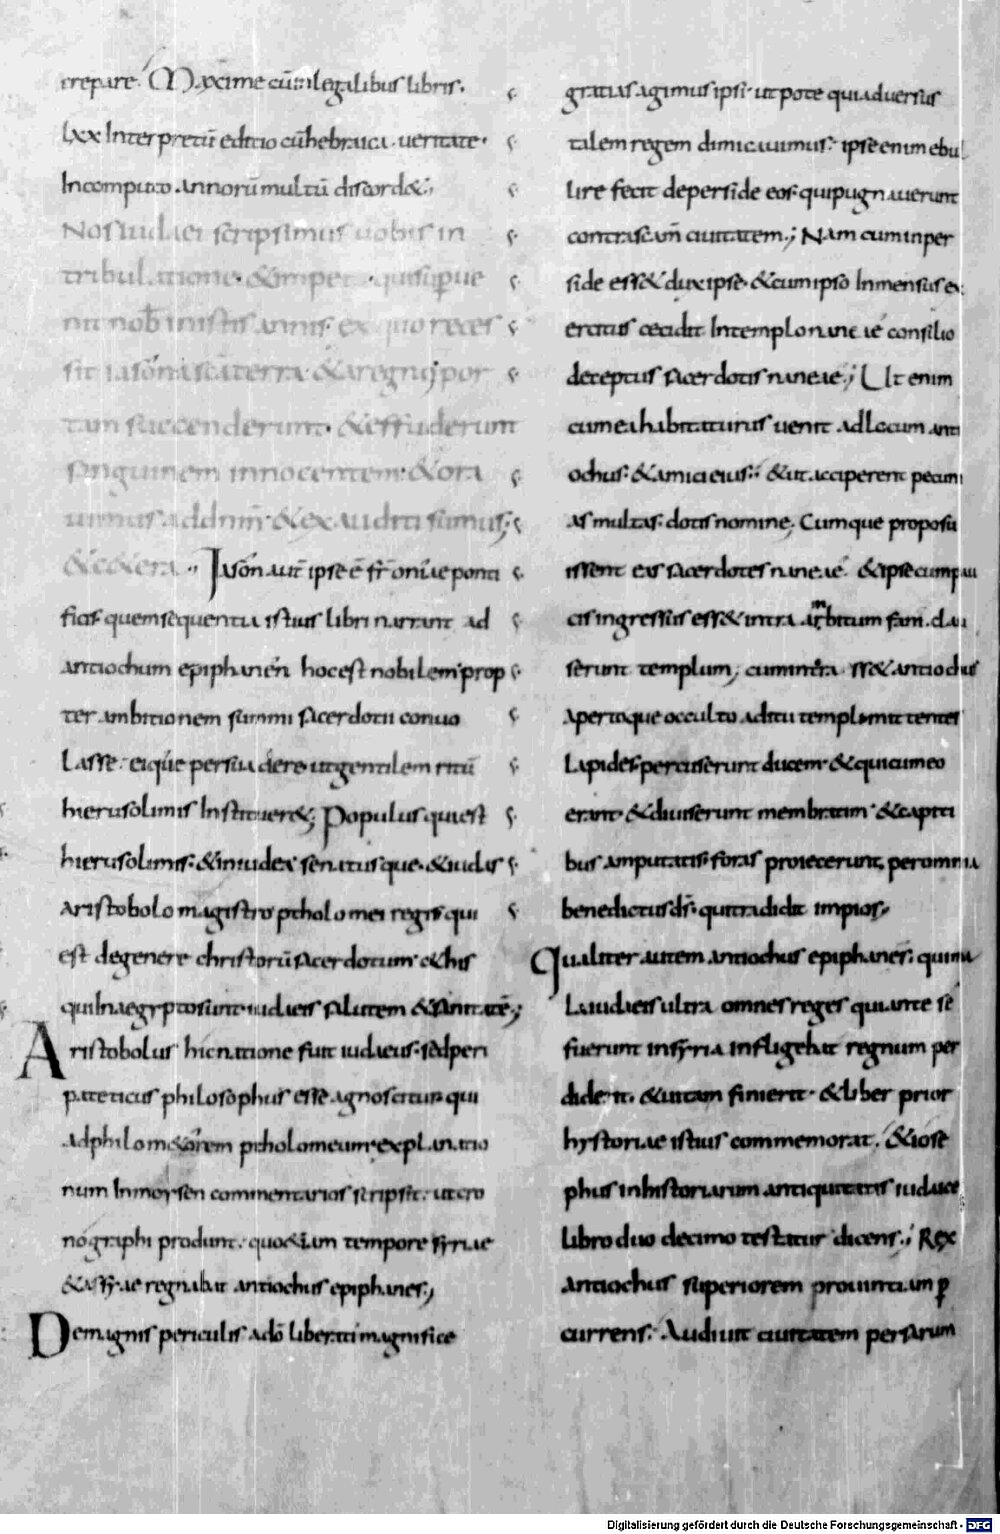 crepare. Maxime cū in legalibus libris.
lxx Interpretū editio cū hebraica ueritate.
In computo annorū multū discord&;
Nos iudaei scripsimus uobis in
tribulatione. & impet quisuperue
nit nob in istis annis. ex quo reces
sit iason a sca terra & a regno; por
tam succenderunt. & effuderunt
sanguinem innocentem. & ora
uimus ad dnm. & exauditi sumus;
& cetera. Iason aut ipse ē fr oniae ponti
ficis quem sequentia istius libri narrant ad
antiochum epiphanen hoc est nobilem. prop
ter ambitionem summi sacerdotii conuo
lasse. eique persuadere ut gentilem ritū
hierusolimis Instituer&; Populus qui est
hierusolimis. & in iudea senatusque. & iudas
aristobolo magistro ptholomei regis qui
est de genere christorū sacerdotum. & his
qui In aegypto sunt. iudaeis salutem & sanitatē;
Aristobolus hic natione fuit iudaeus. sed peri
pateticus philosophus esse agnoscitur. qui
ad philometorem ptholomeum. explanatio
num In moysen commentarios scripsit. ut cro
nographi produnt. quo&iam tempore syriae
& assyriae regnabat antiochus epiphanes;
De magnis periculis a dō liberati magnifice
gratias agimus ipsi. utpote qui aduersus
talem regem dimicauimus. ipse enim ebul
lire fecit de perside eos. qui pugnauerunt
contra scam ciuitatem; Nam cum in per
side ess& dux ipse. & cum ipso Inmensus ex
ercitus cecidit In templo naneae consilio
deceptus sacerdotis naneae; Ut enim
cum ea habitaturus uenit ad locum anti
ochus. & amici eius. & ut acciperent pecuni
as multas. dotis nomine; Cumque proposu
issent eis sacerdotes naneae. & ipse cum pau
cis ingressus ess& intra ambitum fani. clau
serunt templum; cum intrass& antiochus
apertoque occulto aditu templi mittentes
lapides percuserunt ducem. & qui cum eo
erant. & diuiserunt membratim. & capiti
bus amputatis. foras proiecerunt; per omnia
benedictus dś. qui tradidit impios;
Qualiter autem antiochus epiphanes. qui ma
la iudaeis ultra omnes reges qui ante sē
fuerunt in syria infligebat regnum per
diderit. & uitam finierit. & liber prior
hystoriae istius commemorat. & iose
phus in historiarum antiquitatis iudaice
libro duo decimo testatur dicens; Rex
antiochus superiorem prouintiam p
currens. Audiuit ciuitatem persarum
Digitalisierung gefördert durch die Deutsche Forschungsgemeinschaft - DFG